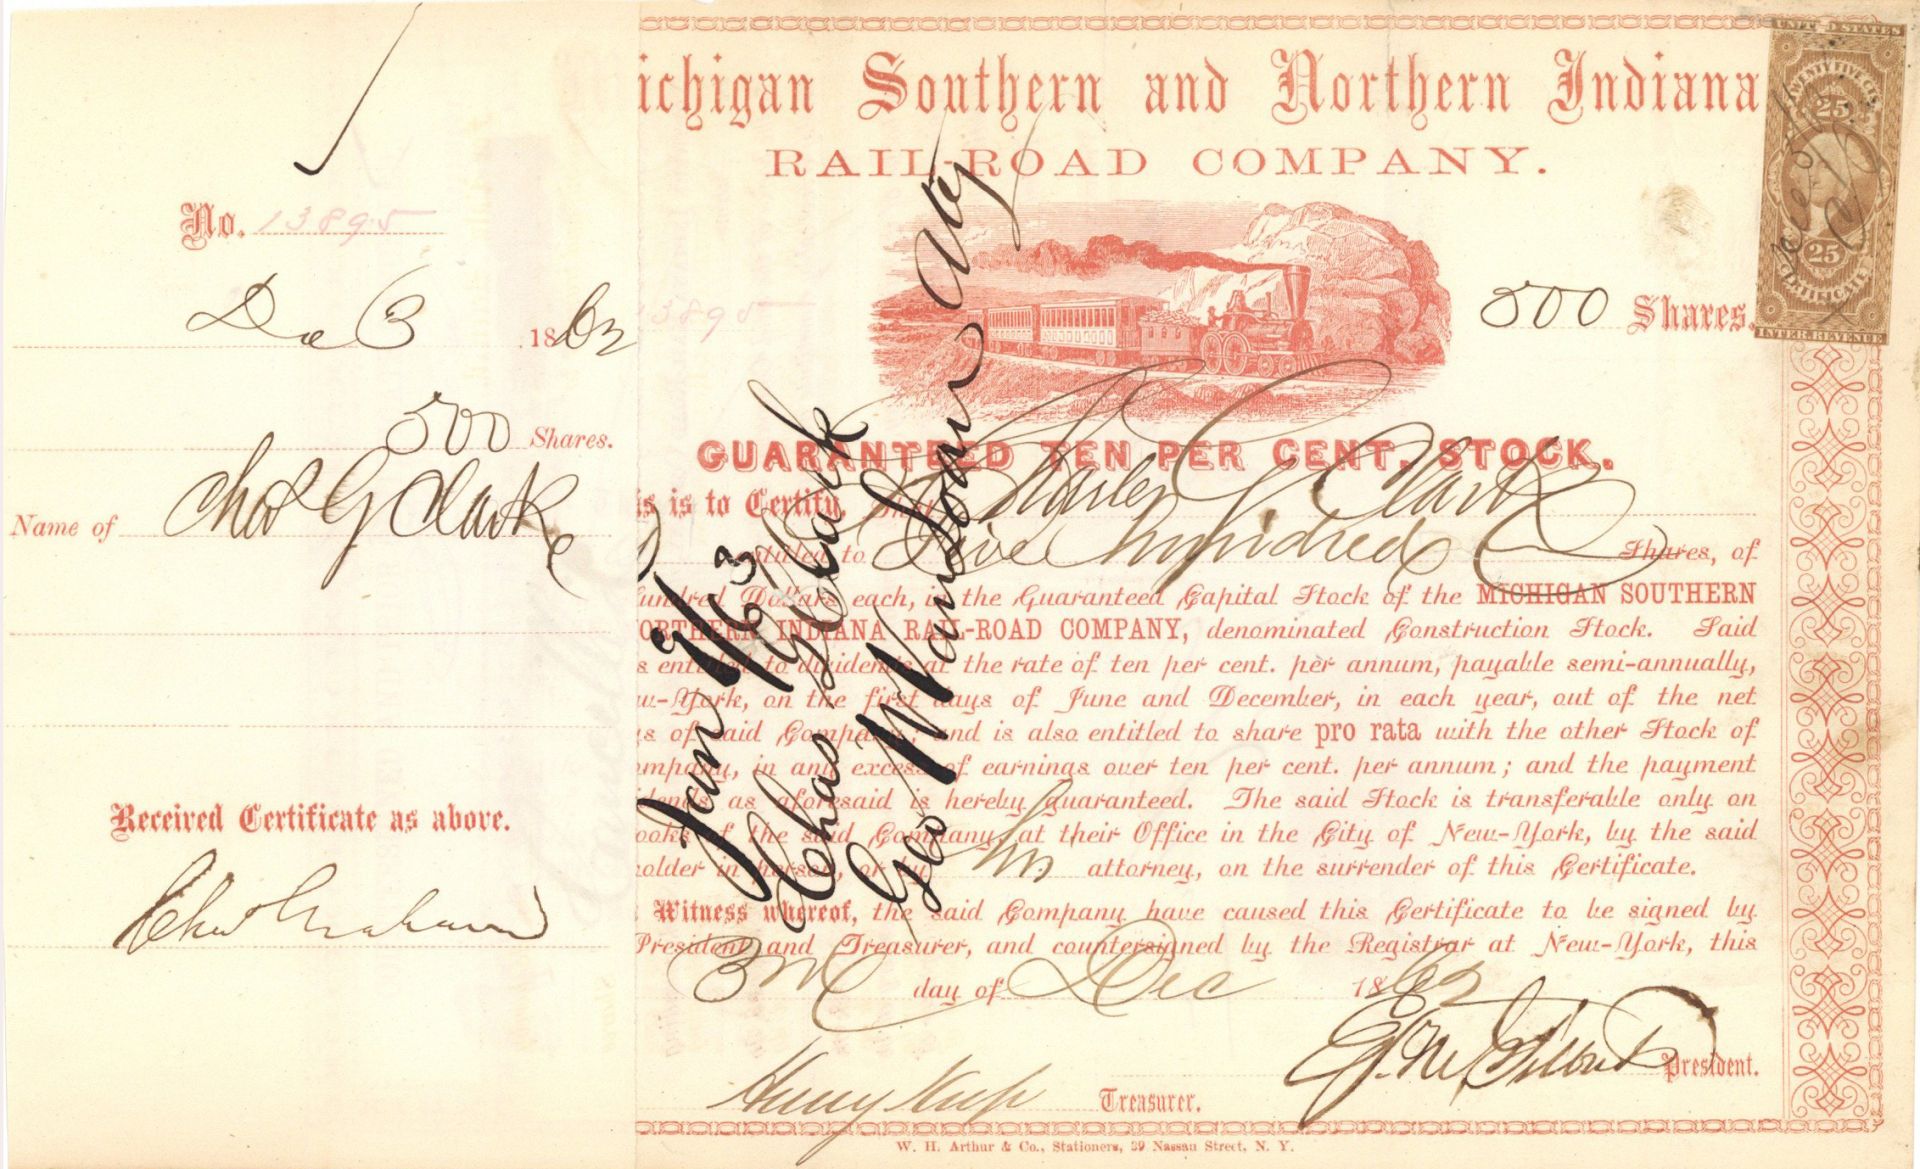 No. 13895
Dec 3 1862
500 Shares.
Name of Chas G Clark
Received Certificate as above.
Michigan Southern and Northern Indiana
RAIL-ROAD COMPANY.
13895
500 Shares.
UNITED STATES
TWENTY FIVE CTS.
25
25
CERTIFICATE
INTER. REVENUE
GUARANTEED TEN PER CENT. STOCK.
is is to Certify, that Charles G Clark
entitled to Five Hundred Shares, of
undred Dollars each, in the Guaranteed Capital Stock of the MICHIGAN SOUTHERN
ORTHERN INDIANA RAIL-ROAD COMPANY, denominated Construction Stock. Said
s entitled to dividends at the rate of ten per cent. per annum, payable semi-annually,
w-York, on the first days of June and December, in each year, out of the net
gs of said Company; and is also entitled to share pro rata with the other Stock of
ompany, in any excess of earnings over ten per cent. per annum; and the payment
idends as aforesaid is hereby guaranteed. The said Stock is transferable only on
ooks of the said Company, at their Office in the City of New-York, by the said
older in person, or by his attorney, on the surrender of this Certificate.
Witness whereof, the said Company have caused this Certificate to be signed by
President and Treasurer, and countersigned by the Registrar at New-York, this
3rd day of Dec 1862
President.
Henry Keep Treasurer.
W. H. Arthur & Co., Stationers, 39 Nassau Street, N. Y.
Jan 9/63
Chas G Clark
Geo W Atty